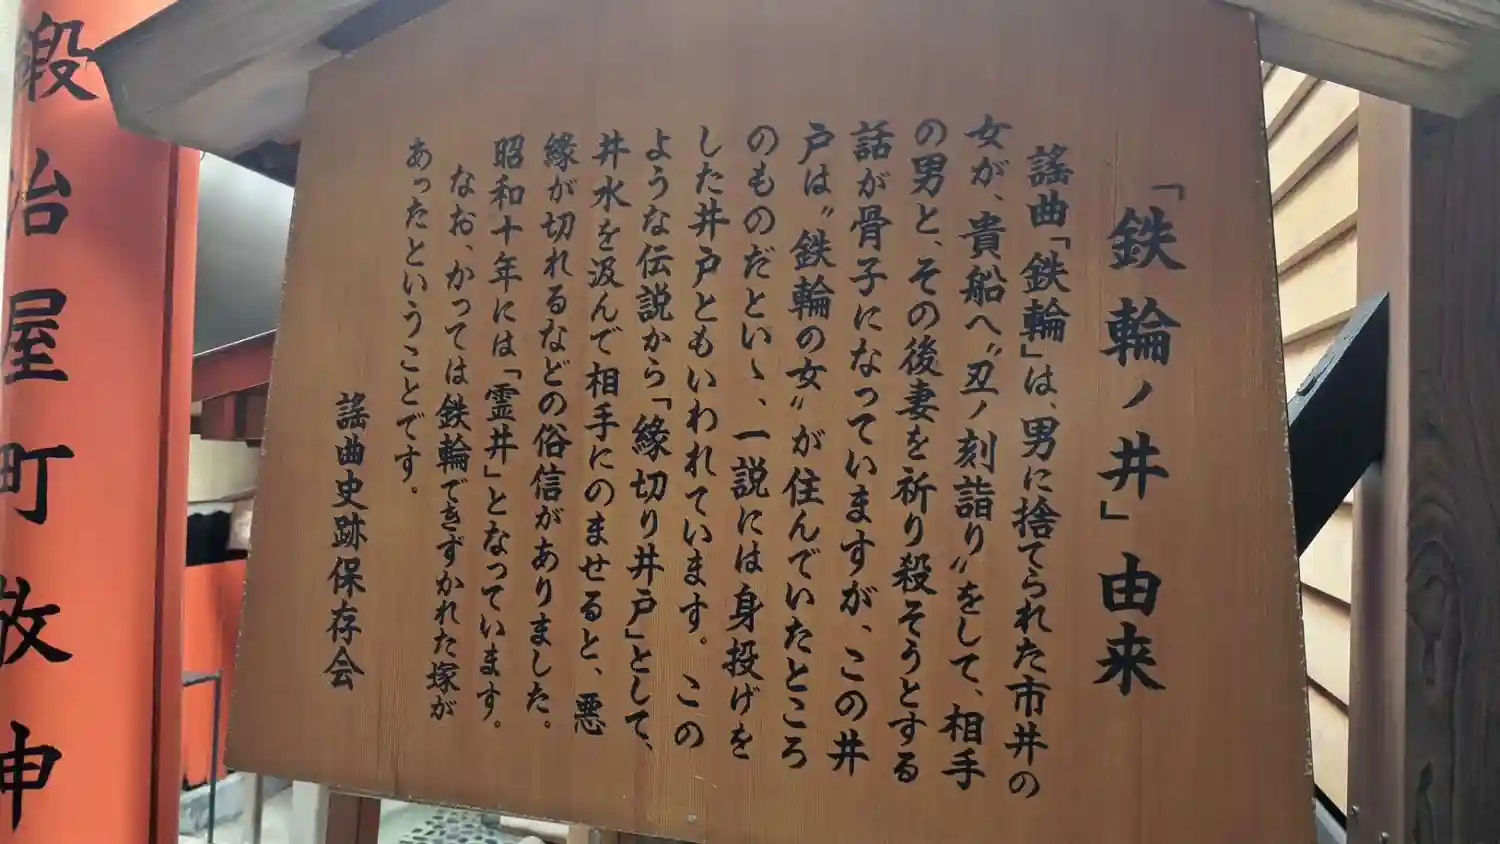 「鉄輪ノ井」由来
謡曲「鉄輪」は、男に捨てられた市井の
女が、貴船へ〝丑ノ刻詣り〟をして、相手
の男と、その後妻を祈り殺そうとする
話が骨子になっていますが、この井
戸は〝鉄輪の女〟が住んでいたところ
のものだといゝ、一説には身投げを
した井戸ともいわれています。この
ような伝説から「縁切り井戸」として、
井水を汲んで相手にのませると、悪
縁が切れるなどの俗信がありました。
昭和十年には「霊井」となっています。
なお、かつては鉄輪できずかれた塚が
あったということです。
謡曲史跡保存会
鍛冶屋町敬神